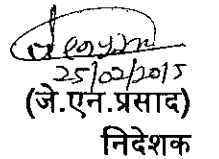 25/02/2015
(जे.एन.प्रसाद)
निदेशक